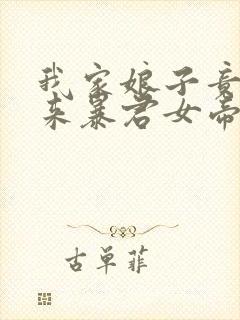 我家娘子竟
来暴君女帝
古单菲